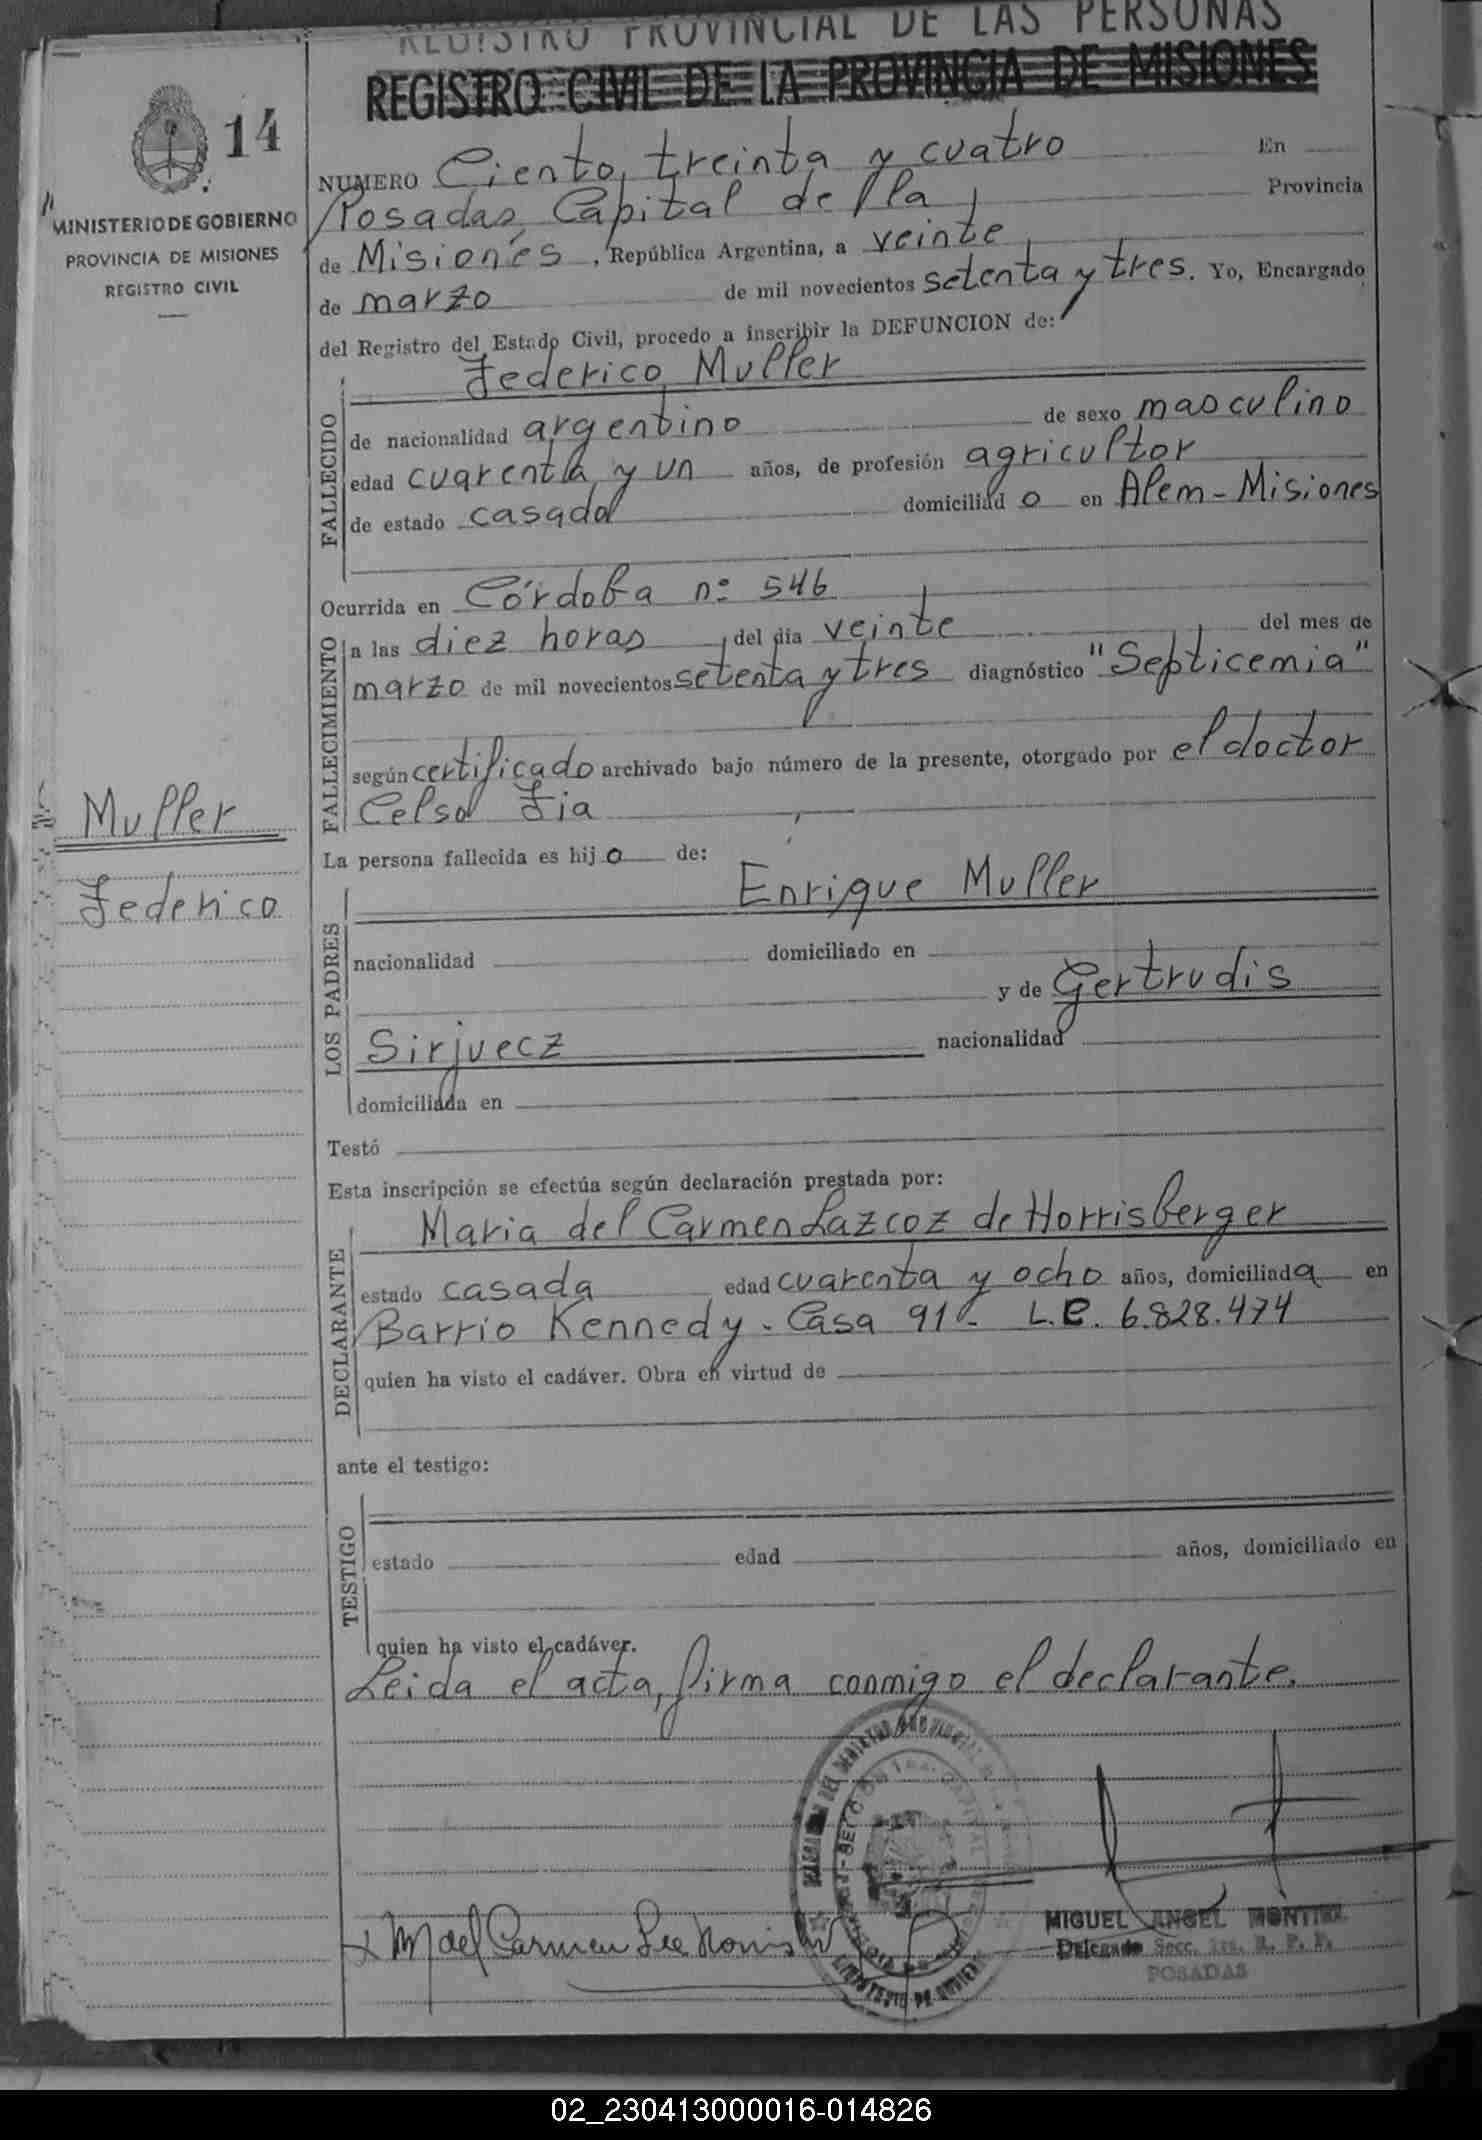 REGISTRO PROVINCIAL DE LAS PERSONAS
REGISTRO CIVIL DE LA PROVINCIA DE MISIONES
14
MINISTERIO DE GOBIERNO
PROVINCIA DE MISIONES
REGISTRO CIVIL
NUMERO Ciento treinta y cuatro En
Posadas, Capital de la Provincia
de Misiones, República Argentina, a veinte
de marzo de mil novecientos setenta y tres. Yo, Encargado
del Registro del Estado Civil, procedo a inscribir la DEFUNCION de:
Federico Muller
FALLECIDO
de nacionalidad argentino de sexo masculino
edad cuarenta y un años, de profesión agricultor
de estado casado domiciliado en Alem - Misiones
Ocurrida en Córdoba nº 546
FALLECIMIENTO
a las diez horas, del día veinte del mes de
marzo de mil novecientos setenta y tres diagnóstico "Septicemia"
según certificado archivado bajo número de la presente, otorgado por el doctor
Celso Fia
Muller
Federico
La persona fallecida es hijo de:
Enrique Muller
LOS PADRES
nacionalidad domiciliado en
y de Gertrudis
Sirjuecz nacionalidad
domiciliada en
Testó
Esta inscripción se efectúa según declaración prestada por:
Maria del Carmen Lazcoz de Horrisberger
DECLARANTE
estado casada edad cuarenta y ocho años, domiciliada en
Barrio Kennedy. Casa 91 - L.C. 6.828.474
quien ha visto el cadáver. Obra en virtud de
ante el testigo:
TESTIGO
estado edad años, domiciliado en
quien ha visto el cadáver.
Leida el acta, firma conmigo el declarante.
M del Carmen
MIGUEL ANGEL
Delegado Secc. 1ra. R. P. P.
POSADAS
02_230413000016-014826